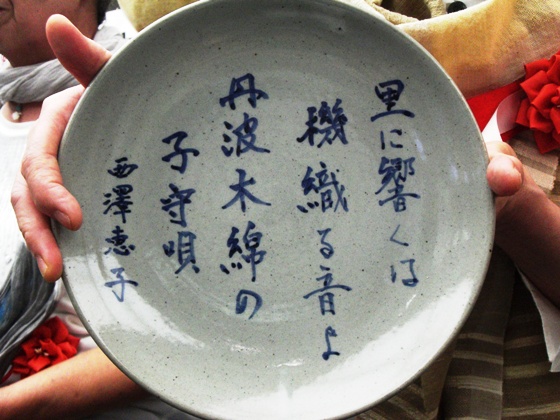 里に響くは
機織る音よ
丹波木綿の
子守唄
西澤恵子